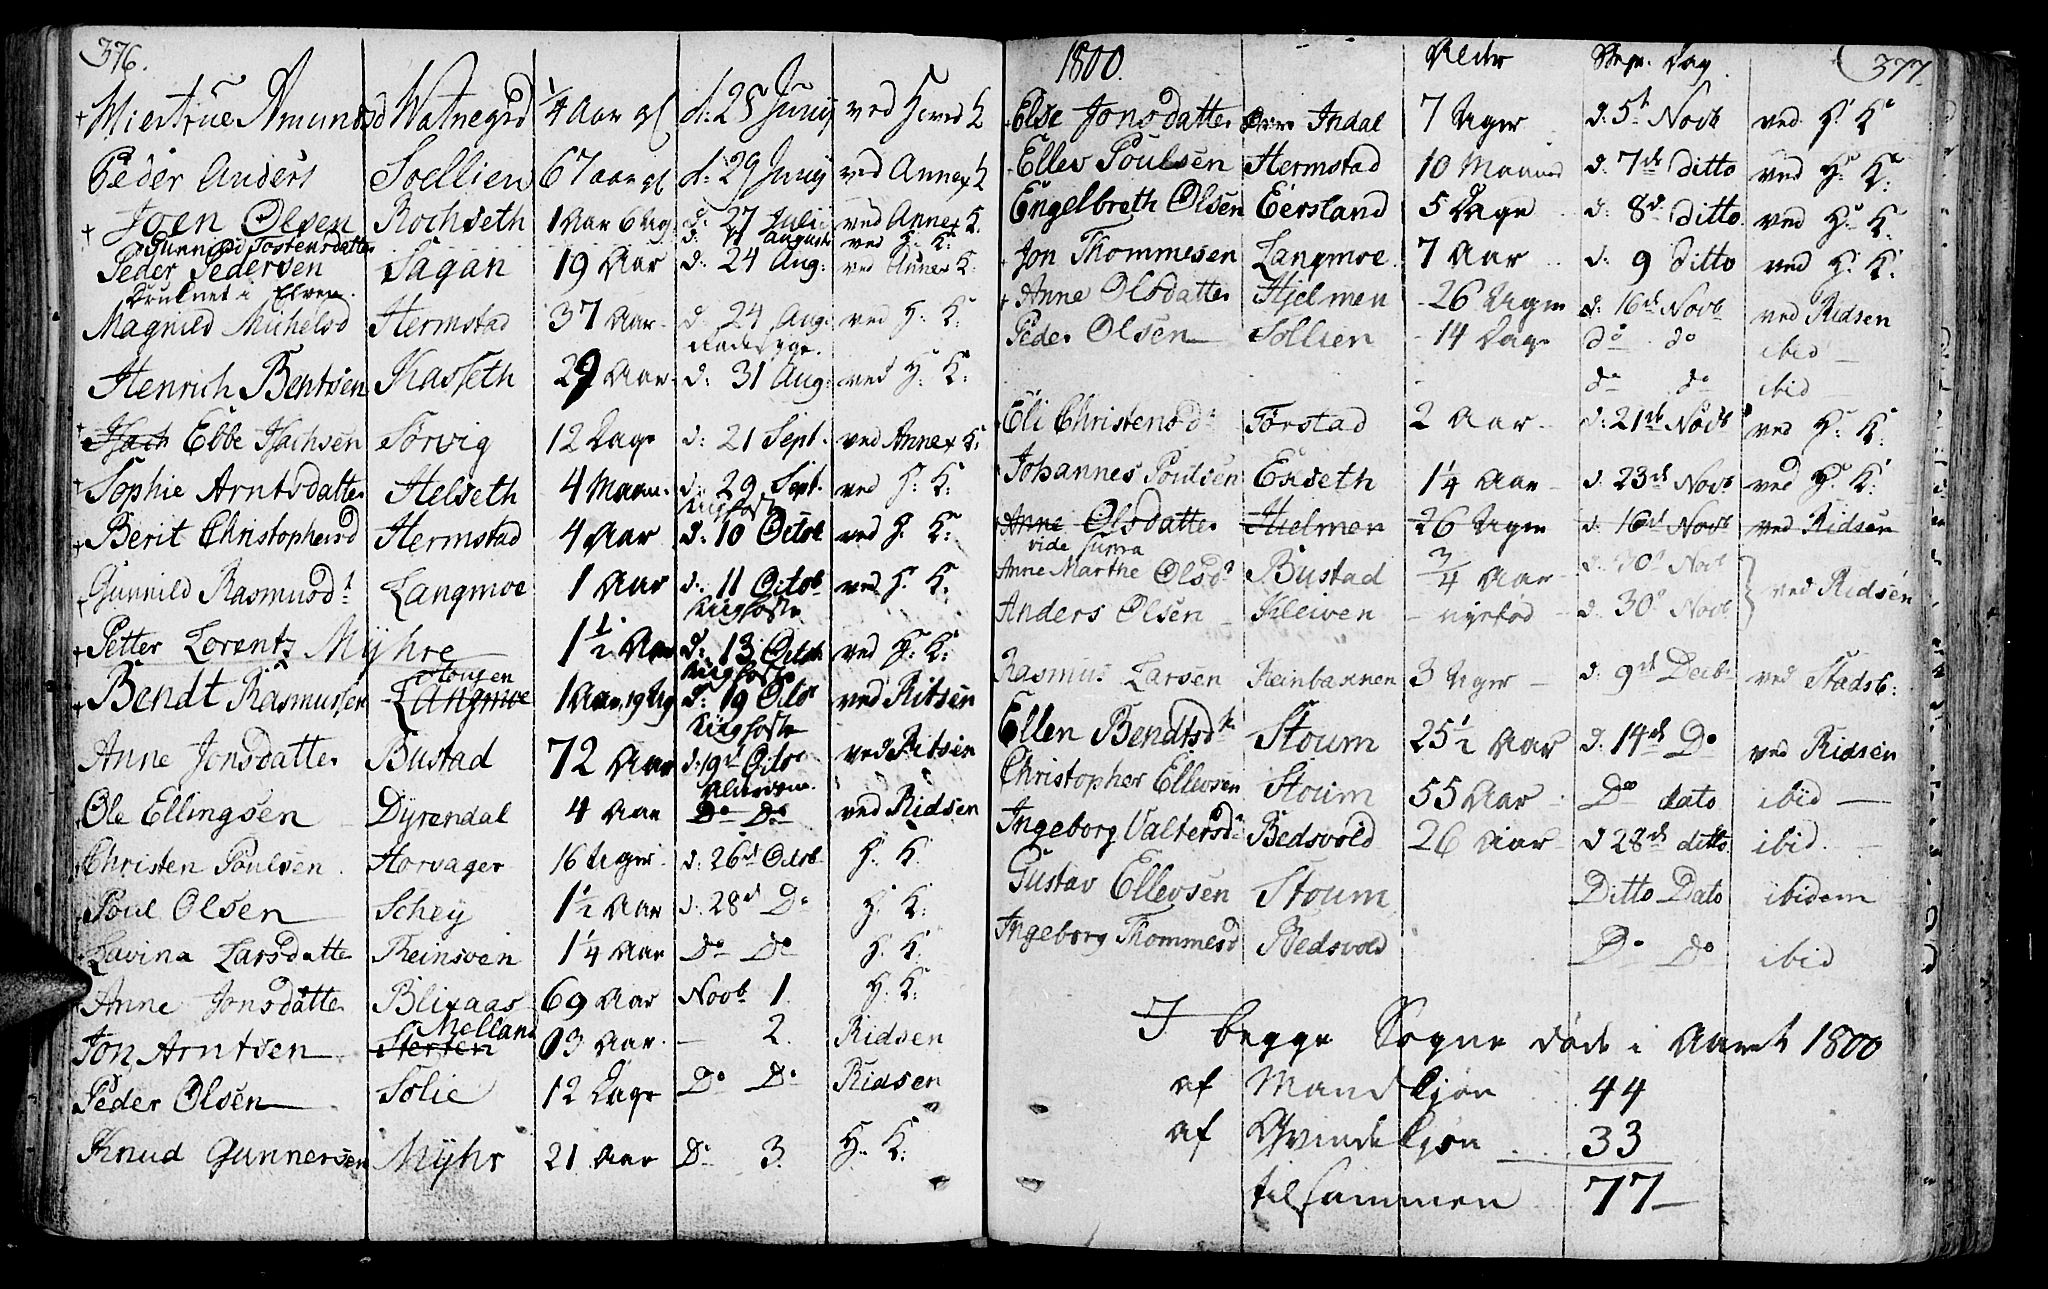 376.
Miertrue Amundsd Watnegrd 1/4 Aar gl d: 25 Junij ved Hoved K
Peder Anders Soellien 67 aar gl d: 29 Junij ved Annex K
Joen Olsen Rochseth 1 Aar 6 Ug d. 27 Julii ved Annex K.
Gunnild Tostensdatter august ved H. K:
Peder Pedersen Sagan 19 Aar d: 24 Aug: ved Annex K.
Druknet i Elven.
Magnild Michelsd Hermstad 37 Aar. d: 24 Aug: ved H. K:
Henrich Bentsen Kasseth 29 Aar. d: 31 Aug: ved H. K:
Isach Ebbe Isachsen Sørvig 12 Dage d: 21 Sept. ved Annex K:
Sophie Arntsdatter Helseth 4 Maan. d: 29 Sept. ved H. K:
Kighoste
Berit Christophersd Hermstad 4 Aar d: 10 Octob ved H. K:
Gunnild Rasmusdt Langmoe 1 Aar d. 11 Octob. ved H. K.
Kighoste
Petter Lorentz Myhre 1 1/2 Aar d: 13 Octob ved H: K:
Kighoste
Bendt Rasmussen Langmoe 1 Aar. 19 Ug d: 19 Octo ved Ritsen
Kighoste
Anne Jonsdatter Bustad 72 Aar d: 19d Octo ved Ritsen
Alderdom.
Ole Ellingsen Dyrendal 4 Aar Do Do ved Ridsen
Christen Poulsen Horvager 16 Uger d. 26d Octob H. K.
Poul Olsen Schey 1 1/2 Aar d. 28d Do H. K:
Lavina Larsdatte Reinsven 1 1/4 Aar Do Do H. K:
Anne Jonsdatter Blixaas 69 Aar Novb 1. H. K:
Melland
Jon Arntsen Stersten 03 Aar. — 2. Ridsen
Peder Olsen Solie 12 Dage Do Do Ridsen
Knud Gunnersen Myhr 21 Aar Do 3. H. K:
1800. Alder Begr. Dag 377.
Else Jonsdatter Indal 7 Uger d. 5t Novb ved H. K
Ellev Poulsen Hermstad 10 Maaned d: 7de ditto ved H: K:
Engelbreth Olsen Eerstand 5 Dage d: 8d ditto. ved H. K:
Jon Thommesen Langmoe. 7 Aar d: 9 ditto ved H. K:
Anne Olsdatter Hjelmen 26 Uger d. 16d Novb ved Ridsen
Peder Olsen Sollien 14 Dage do do ibid
do do ibid
Eli Christensdr Forstad 2 Aar d: 21de Novb ved H: K:
Johannes Poulsen Exseth 1 1/4 Aar d. 23de Novb ved H. K:
Anne Olsdatter Hielmen 26 Uger d. 16d Novb ved Ridsen
vide supra
Anne Marthe Olsdr Bustad 3/4 Aar d. 30d Novb
Anders Olsen Kleiven nyefød d. 30d Novb ved Ridsen
Rasmus Larsen Steinbakken 3 Uger d. 9de Decb: ved Stadsb:
Ellen Bendtsdtr Stoum 25 1/2 Aar d. 14de Do ved Ridsen
Christopher Ellevsen Stoum 55 Aar Do dato ibid
Ingeborg Valtersdr Bedsvold 26 Aar d 28de ditto ibid.
Gustav Ellevsen Stoum Ditto Dato ibidem
Ingeborg Thommesd Bedsvold Do Do ibid
I begge Sogne døde i Aaret 1800
af Mandkjøn 44
af Qvindekjøn .. 33
tilsammen 77